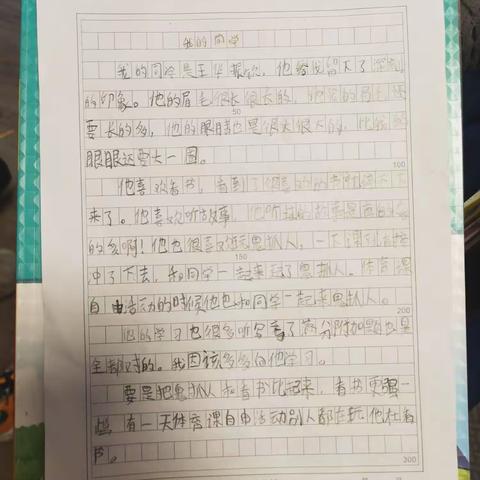 我的同学
我的同学是王华振钦，他给我留下了深刻
的印象。他的眉毛很长很长的，他的
50
要长的多，他的眼睛也是很大很大的，比
眼眼还要大一圈。
100
他喜欢看书，看到了
来了。他喜欢听故事，他听
的多啊！他也很喜欢玩鬼抓人，一下课
150
冲了下去，和同学一起来玩了鬼抓人。体育课
自由活动的时候他也和同学一起来鬼抓人。
200
他的学习也很多听写考了满分附加题也是
全部对的。我因该多多向他学习。
要是把鬼抓人和看书比起来，看书更
些有一天体育课自由活动别人都在玩他在看
书。
300